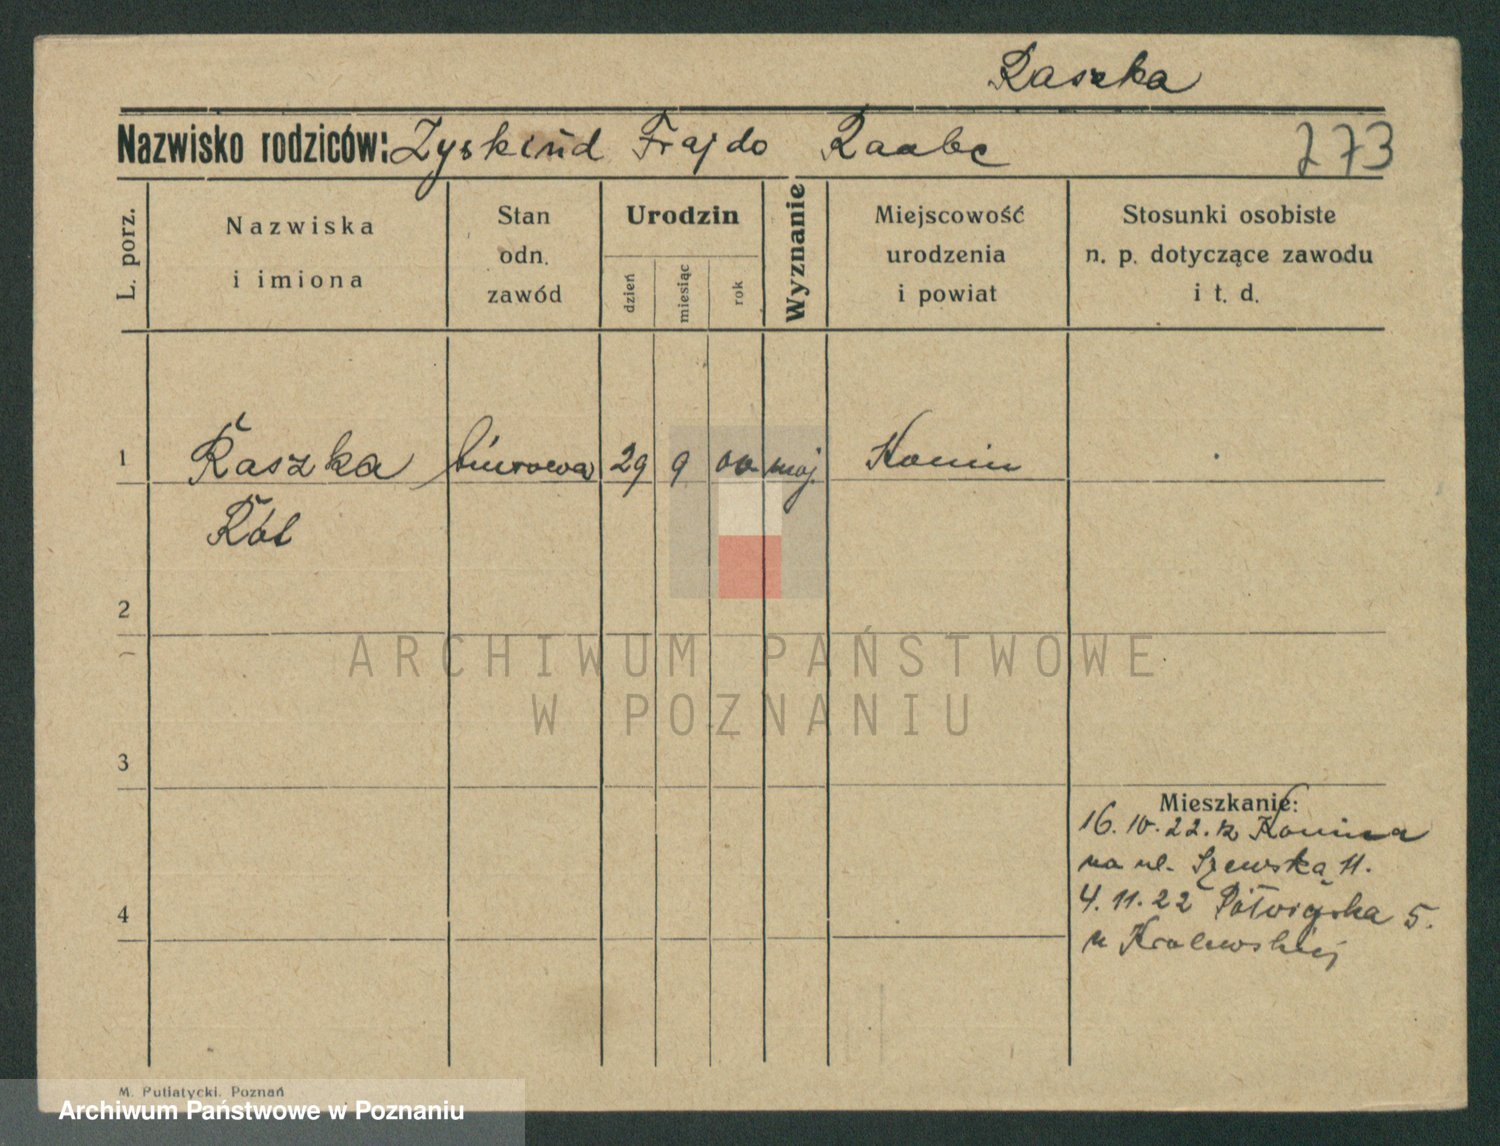 Raszka
Nazwisko rodziców: Zyskind Frajdo Raabe 273
L. porz.
Nazwiska
i imiona
Stan
odn.
zawód
Urodzin
dzień
miesiąc
rok
Wyznanie
Miejscowość
urodzenia
i powiat
Stosunki osobiste
n. p. dotyczące zawodu
i t. d.
1 Raszka biurowa 29 9 00 moj. Konin
Kół
2
3
Mieszkanie:
16.10.22. z Konina
na ul. Szewską 11.
4
4.11.22 5.
u
M. Putiatycki, Poznań
ARCHIWUM PAŃSTWOWE
W POZNANIU
Archiwum Państwowe w Poznaniu